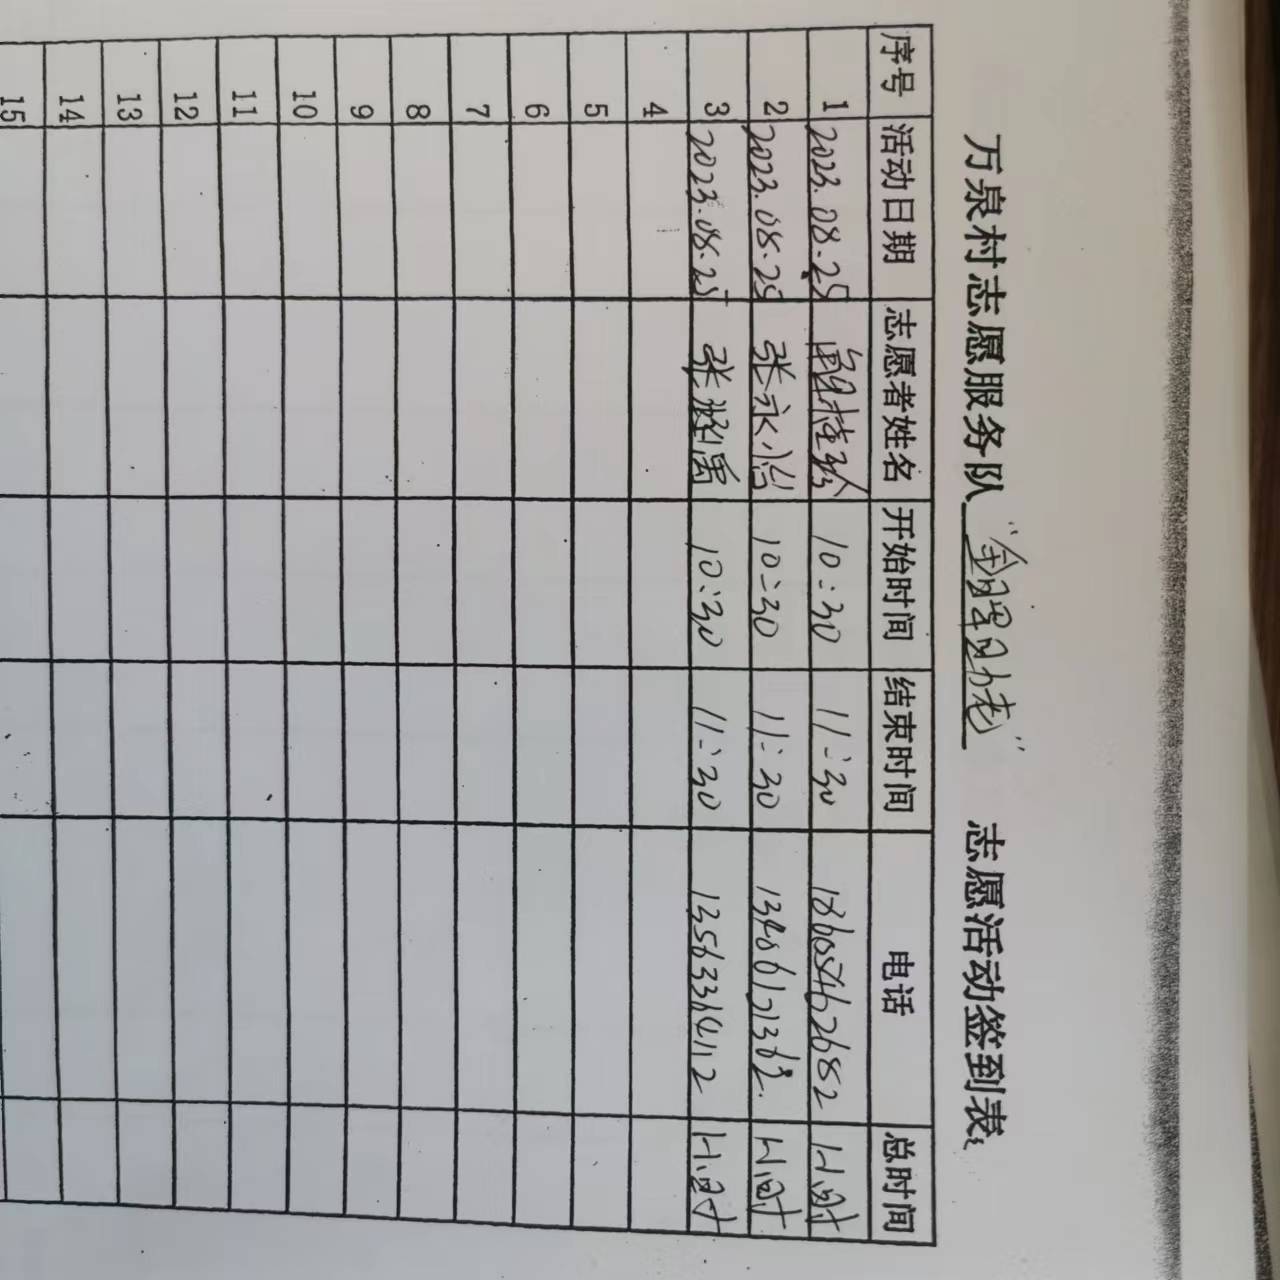 万泉村志愿服务队 “金晖助老” 志愿活动签到表
序号 活动日期 志愿者姓名 开始时间 结束时间 电话 总时间
1 2023.08.25 桂珍 10:30 11:30 18605462682 1小时
2 2023.08.25 张永怡 10:30 11:30 1小时
3 2023.08.25 张 禹 10:30 11:30 13563364112 1小时
4
5
6
7
8
9
10
11
12
13
14
15